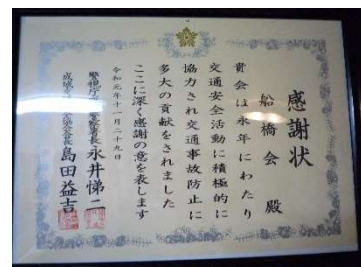 感謝状
船橋会 殿
貴会は永年にわたり
交通安全活動に積極的に
協力され交通事故防止に
多大の貢献をされました
ここに深く感謝の意を表します
令和元年十一月二十九日
警視庁成城警察署長 永井悌二
成城交通安全協会会長 島田益吉